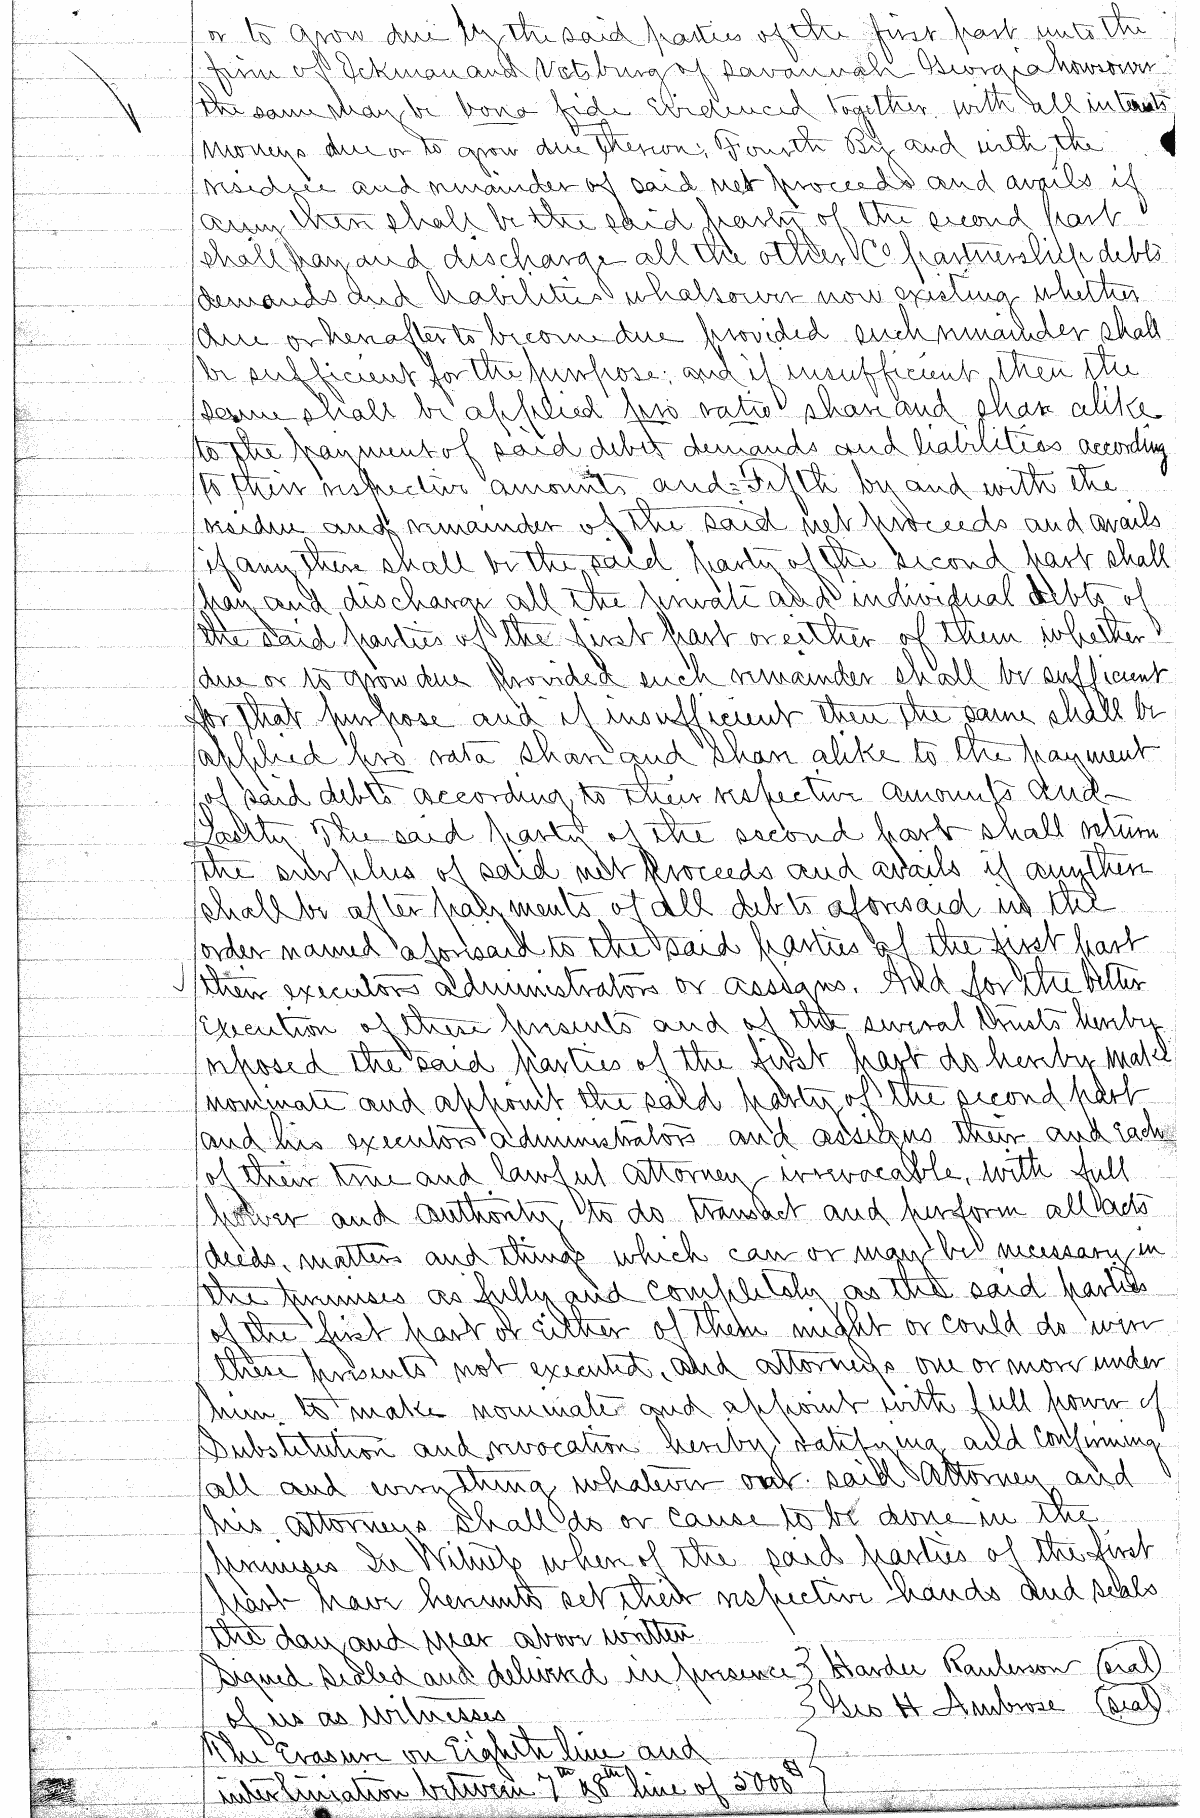 or to grow due by the said parties of the first part unto the
firm of Eckman and Vetsburg of Savannah Georgia howsoever
the same may be bona fide evidenced together with all interests
moneys due or to grow due thereon; Fourth By and with the
residue and remainder of said net proceeds and avails if
any there shall be the said party of the second part
shall pay and discharge all the other Co partnership debts
demands and liabilities whatsoever now existing whether
due or hereafter to become due provided such remainder shall
be sufficient for the purpose; and if insufficient then the
same shall be applied pro ratio share and share alike
to the payment of said debts demands and liabilities according
to their respective amounts and = Fifth by and with the
residue and remainder of the said net proceeds and avails
if any there shall be the said party of the second part shall
pay and discharge all the private and individual debts of
the said parties of the first part or either of them whether
due or to grow due provided such remainder shall be sufficient
for that purpose and if insufficient then the same shall be
applied pro rata share and share alike to the payment
of said debts according to their respective amounts and
Lastly The said party of the second part shall return
the surplus of said net proceeds and avails if any there
shall be after payments of all debts aforesaid in the
order named aforesaid to the said parties of the first part
their executors administrators or assigns. And for the better
execution of these presents and of the several trusts hereby
reposed the said parties of the first part do hereby make
nominate and appoint the said party of the second part
and his executors administrators and assigns their and each
of their true and lawful attorney irrevocable, with full
power and authority to do transact and perform all acts
deeds, matters and things which can or may be necessary in
the premises as fully and completely as the said parties
of the first part or either of them might or could do were
these presents not executed, and attorneys one or more under
him to make nominate and appoint with full power of
Substitution and revocation hereby ratifying and confirming
all and everything whatever our said Attorney and
his attorneys shall do or cause to be done in the
premises In Witness whereof the said parties of the first
part have hereunto set their respective hands and seals
the day and year above written
Signed sealed and delivered in presence } Hardee Raulerson (seal)
of us as witnesses } Geo H Ambrose (seal)
The Erasure on Eighth line and
interliniation between 7th & 8th line of 5000$ }